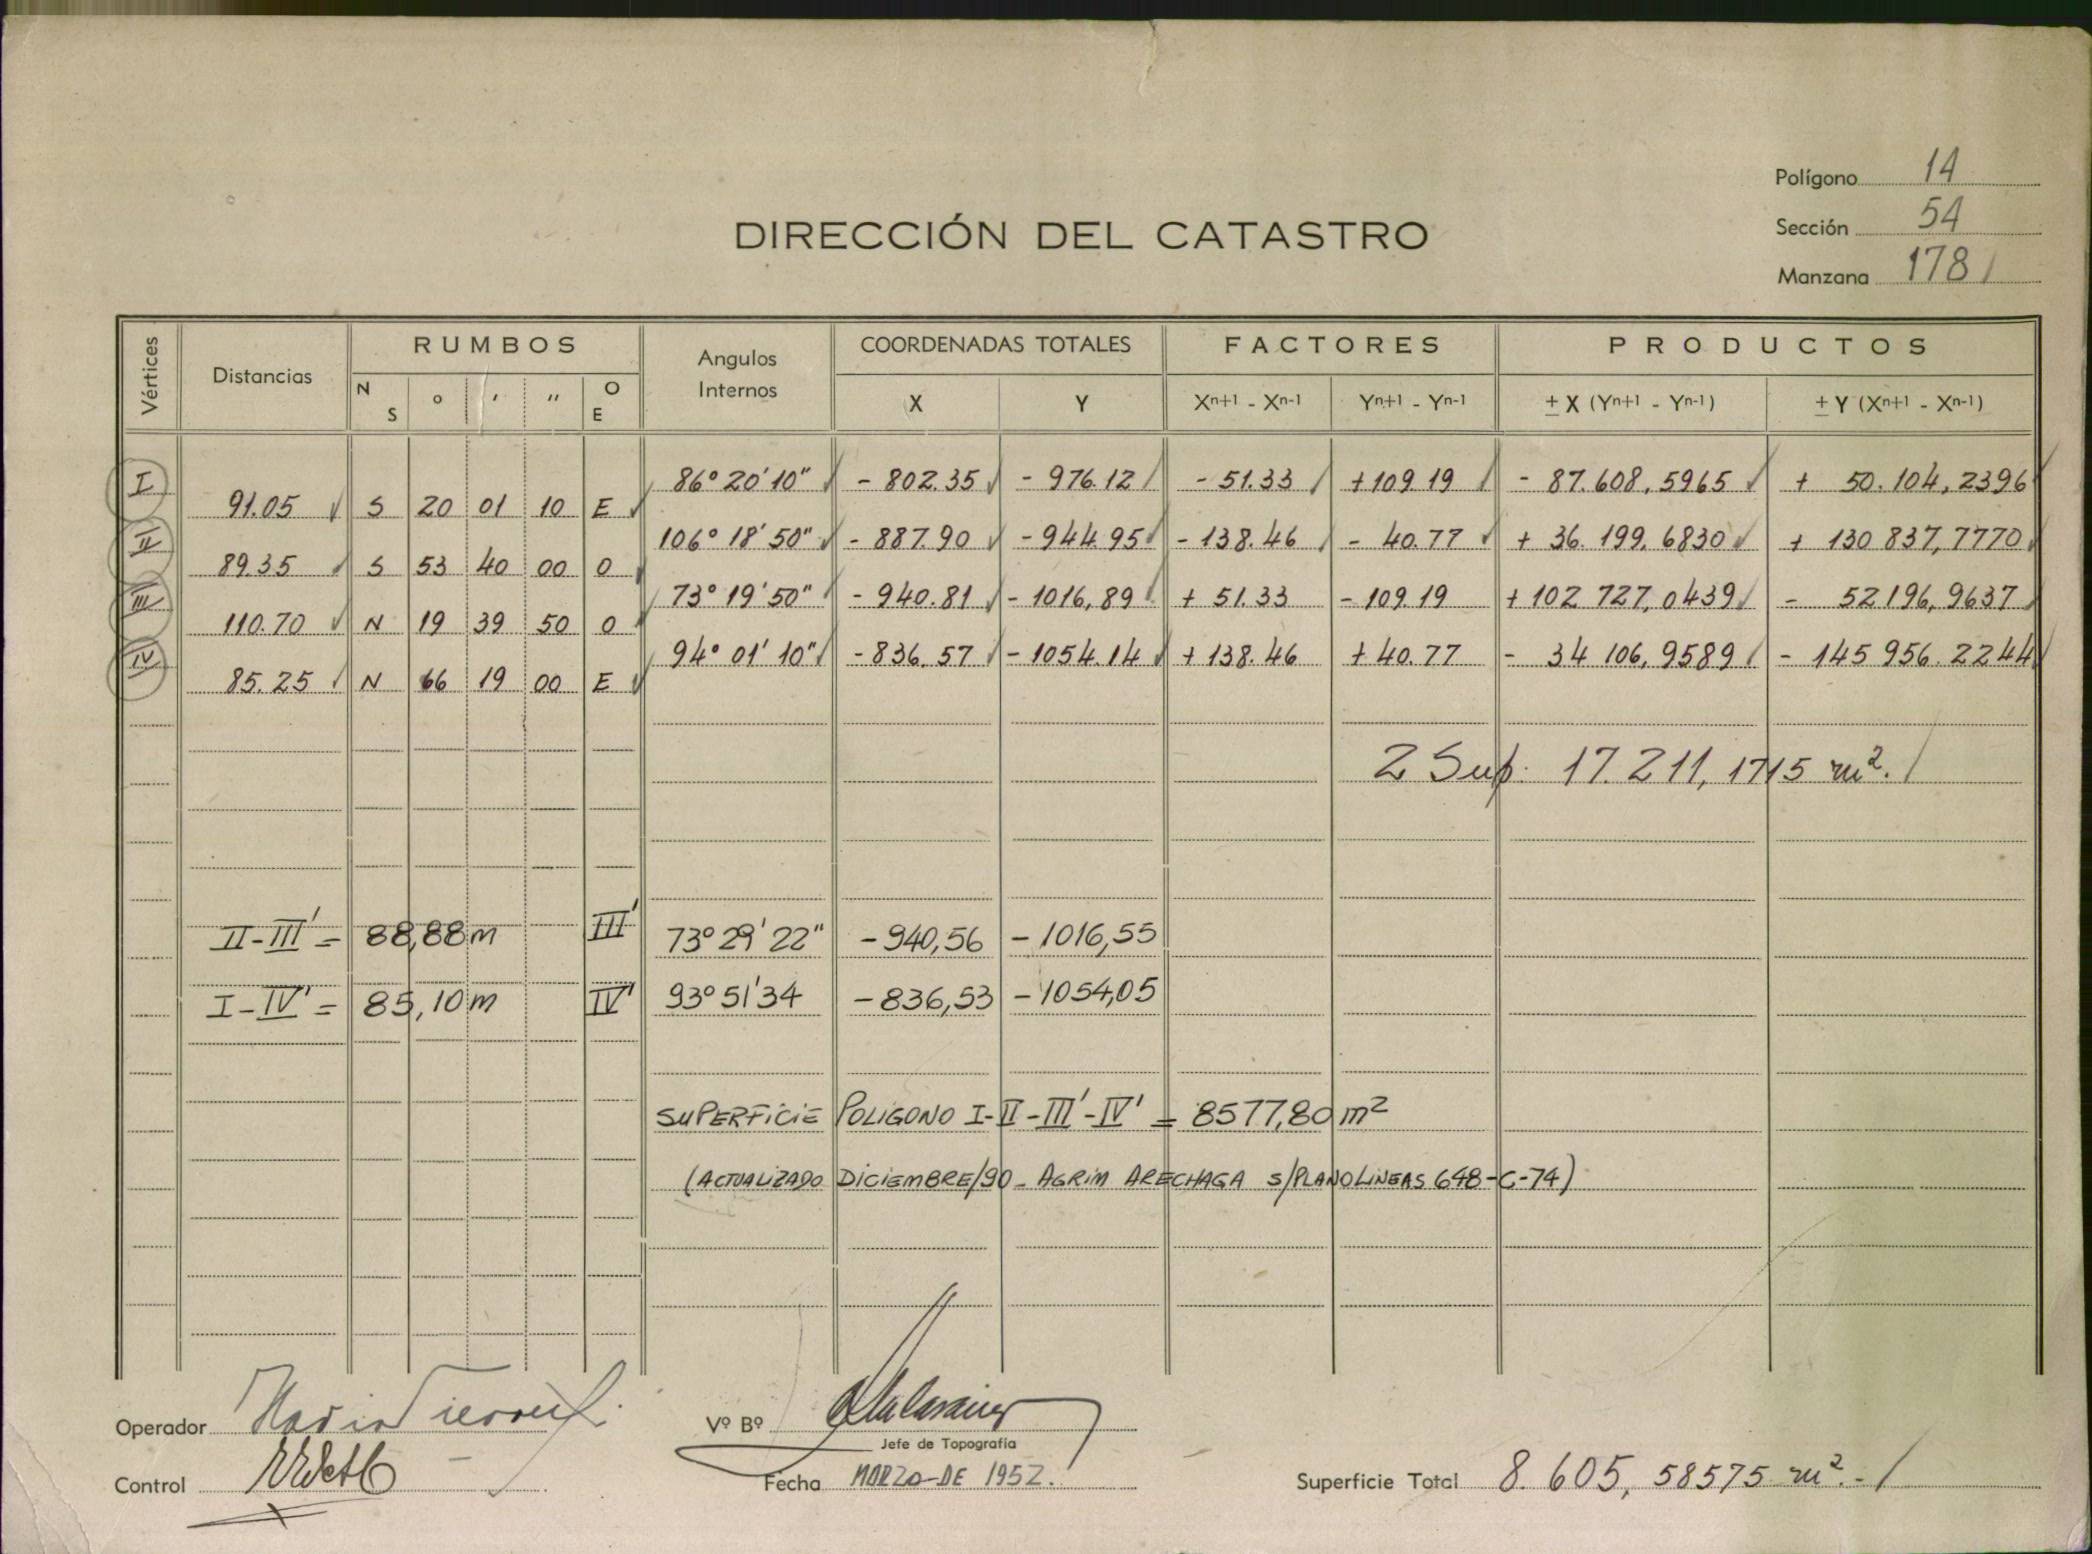 Polígono 14
Sección 54
Manzana 178
DIRECCIÓN DEL CATASTRO
Vértices Distancias RUMBOS Angulos Internos COORDENADAS TOTALES FACTORES PRODUCTOS
N S ° ′ ″ O E X Y Xn+1 - Xn-1 Yn+1 - Yn-1 ± X (Yn+1 - Yn-1) ± Y (Xn+1 - Xn-1)
I 86° 20' 10" - 802.35 - 976.12 - 51.33 +109 19 - 87.608,5965 + 50.104,2396
91.05 S 20 01 10 E
II 106° 18' 50" - 887.90 - 944.95 - 138.46 - 40.77 + 36.199,6830 + 130 837,7770
89.35 S 53 40 00 O
III 73° 19' 50" - 940.81 - 1016,89 + 51.33 - 109.19 + 102 727,0439 - 52196,9637
110.70 N 19 39 50 O
IV 94° 01' 10" - 836.57 - 1054.14 + 138.46 + 40.77 - 34 106,9589 - 145 956.2244
85.25 N 66 19 00 E
2 Sup. 17.211,1715 m².
II-III' = 88,88m III' 73° 29' 22" -940,56 -1016,55
I-IV' = 85,10m IV' 93° 51' 34 -836,53 -1054,05
SUPERFICIE POLIGONO I-II-III'-IV' = 8577,80 m²
(ACTUALIZADO DICIEMBRE/90_ AGRIM ARECHAGA S/PLANO LINEAS 648-C-74)
Operador
Vº Bº
Jefe de Topografía
Control
Fecha MARZO-DE 1952.
Superficie Total 8.605,58575 m².-